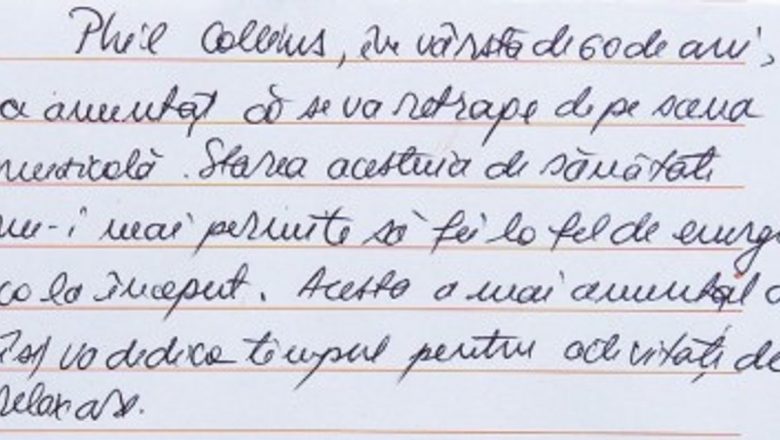 Phil Collins, în vârstă de 60 de ani,
a anunțat că se va retrage de pe scena
muzicală. Starea acestuia de sănătate
nu-i mai permite să fie la fel de energ
ca la început. Acesta a mai anunțat c
își va dedica timpul pentru activități de
relaxare.